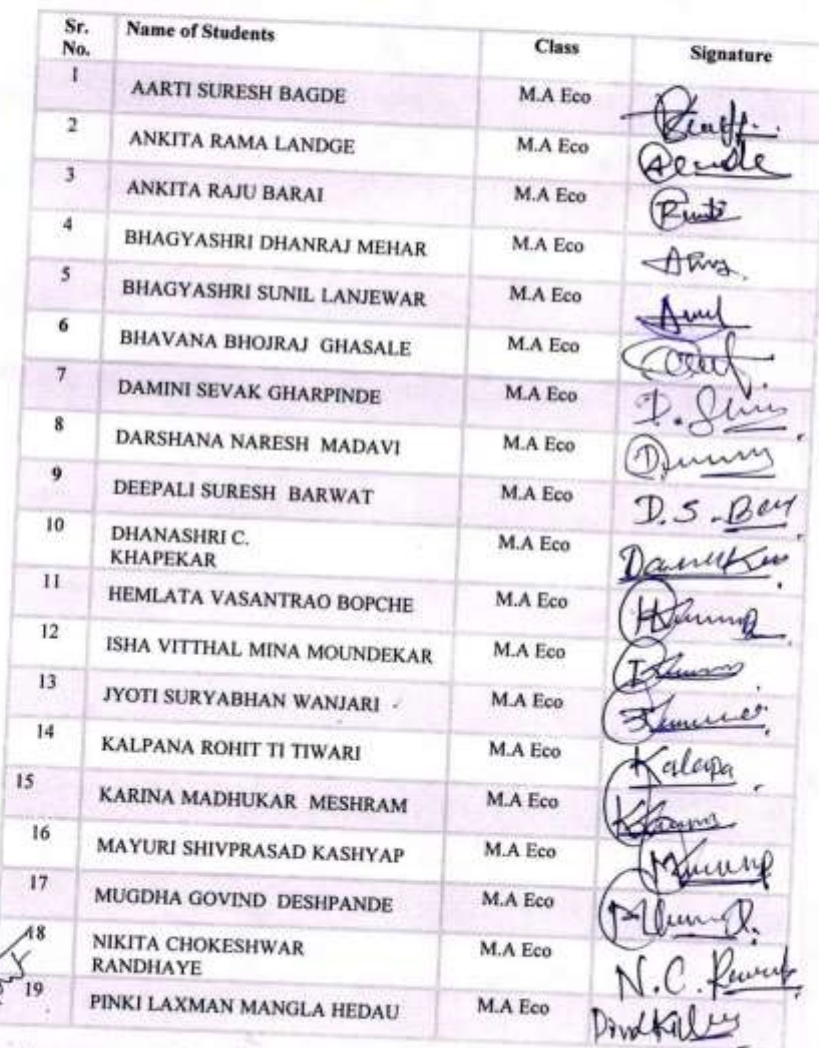 Sr. No. Name of Students Class Signature
1 AARTI SURESH BAGDE M.A Eco
2 ANKITA RAMA LANDGE M.A Eco
3 ANKITA RAJU BARAI M.A Eco
4 BHAGYASHRI DHANRAJ MEHAR M.A Eco
5 BHAGYASHRI SUNIL LANJEWAR M.A Eco
6 BHAVANA BHOJRAJ GHASALE M.A Eco
7 DAMINI SEVAK GHARPINDE M.A Eco
8 DARSHANA NARESH MADAVI M.A Eco
9 DEEPALI SURESH BARWAT M.A Eco D.S.
10 DHANASHRI C. M.A Eco
KHAPEKAR
11 HEMLATA VASANTRAO BOPCHE M.A Eco
12 ISHA VITTHAL MINA MOUNDEKAR M.A Eco
13 JYOTI SURYABHAN WANJARI M.A Eco
14 KALPANA ROHIT TI TIWARI M.A Eco
15 KARINA MADHUKAR MESHRAM M.A Eco
16 MAYURI SHIVPRASAD KASHYAP M.A Eco
17 MUGDHA GOVIND DESHPANDE M.A Eco
18 NIKITA CHOKESHWAR M.A Eco N.C.
RANDHAYE
19 PINKI LAXMAN MANGLA HEDAU M.A Eco